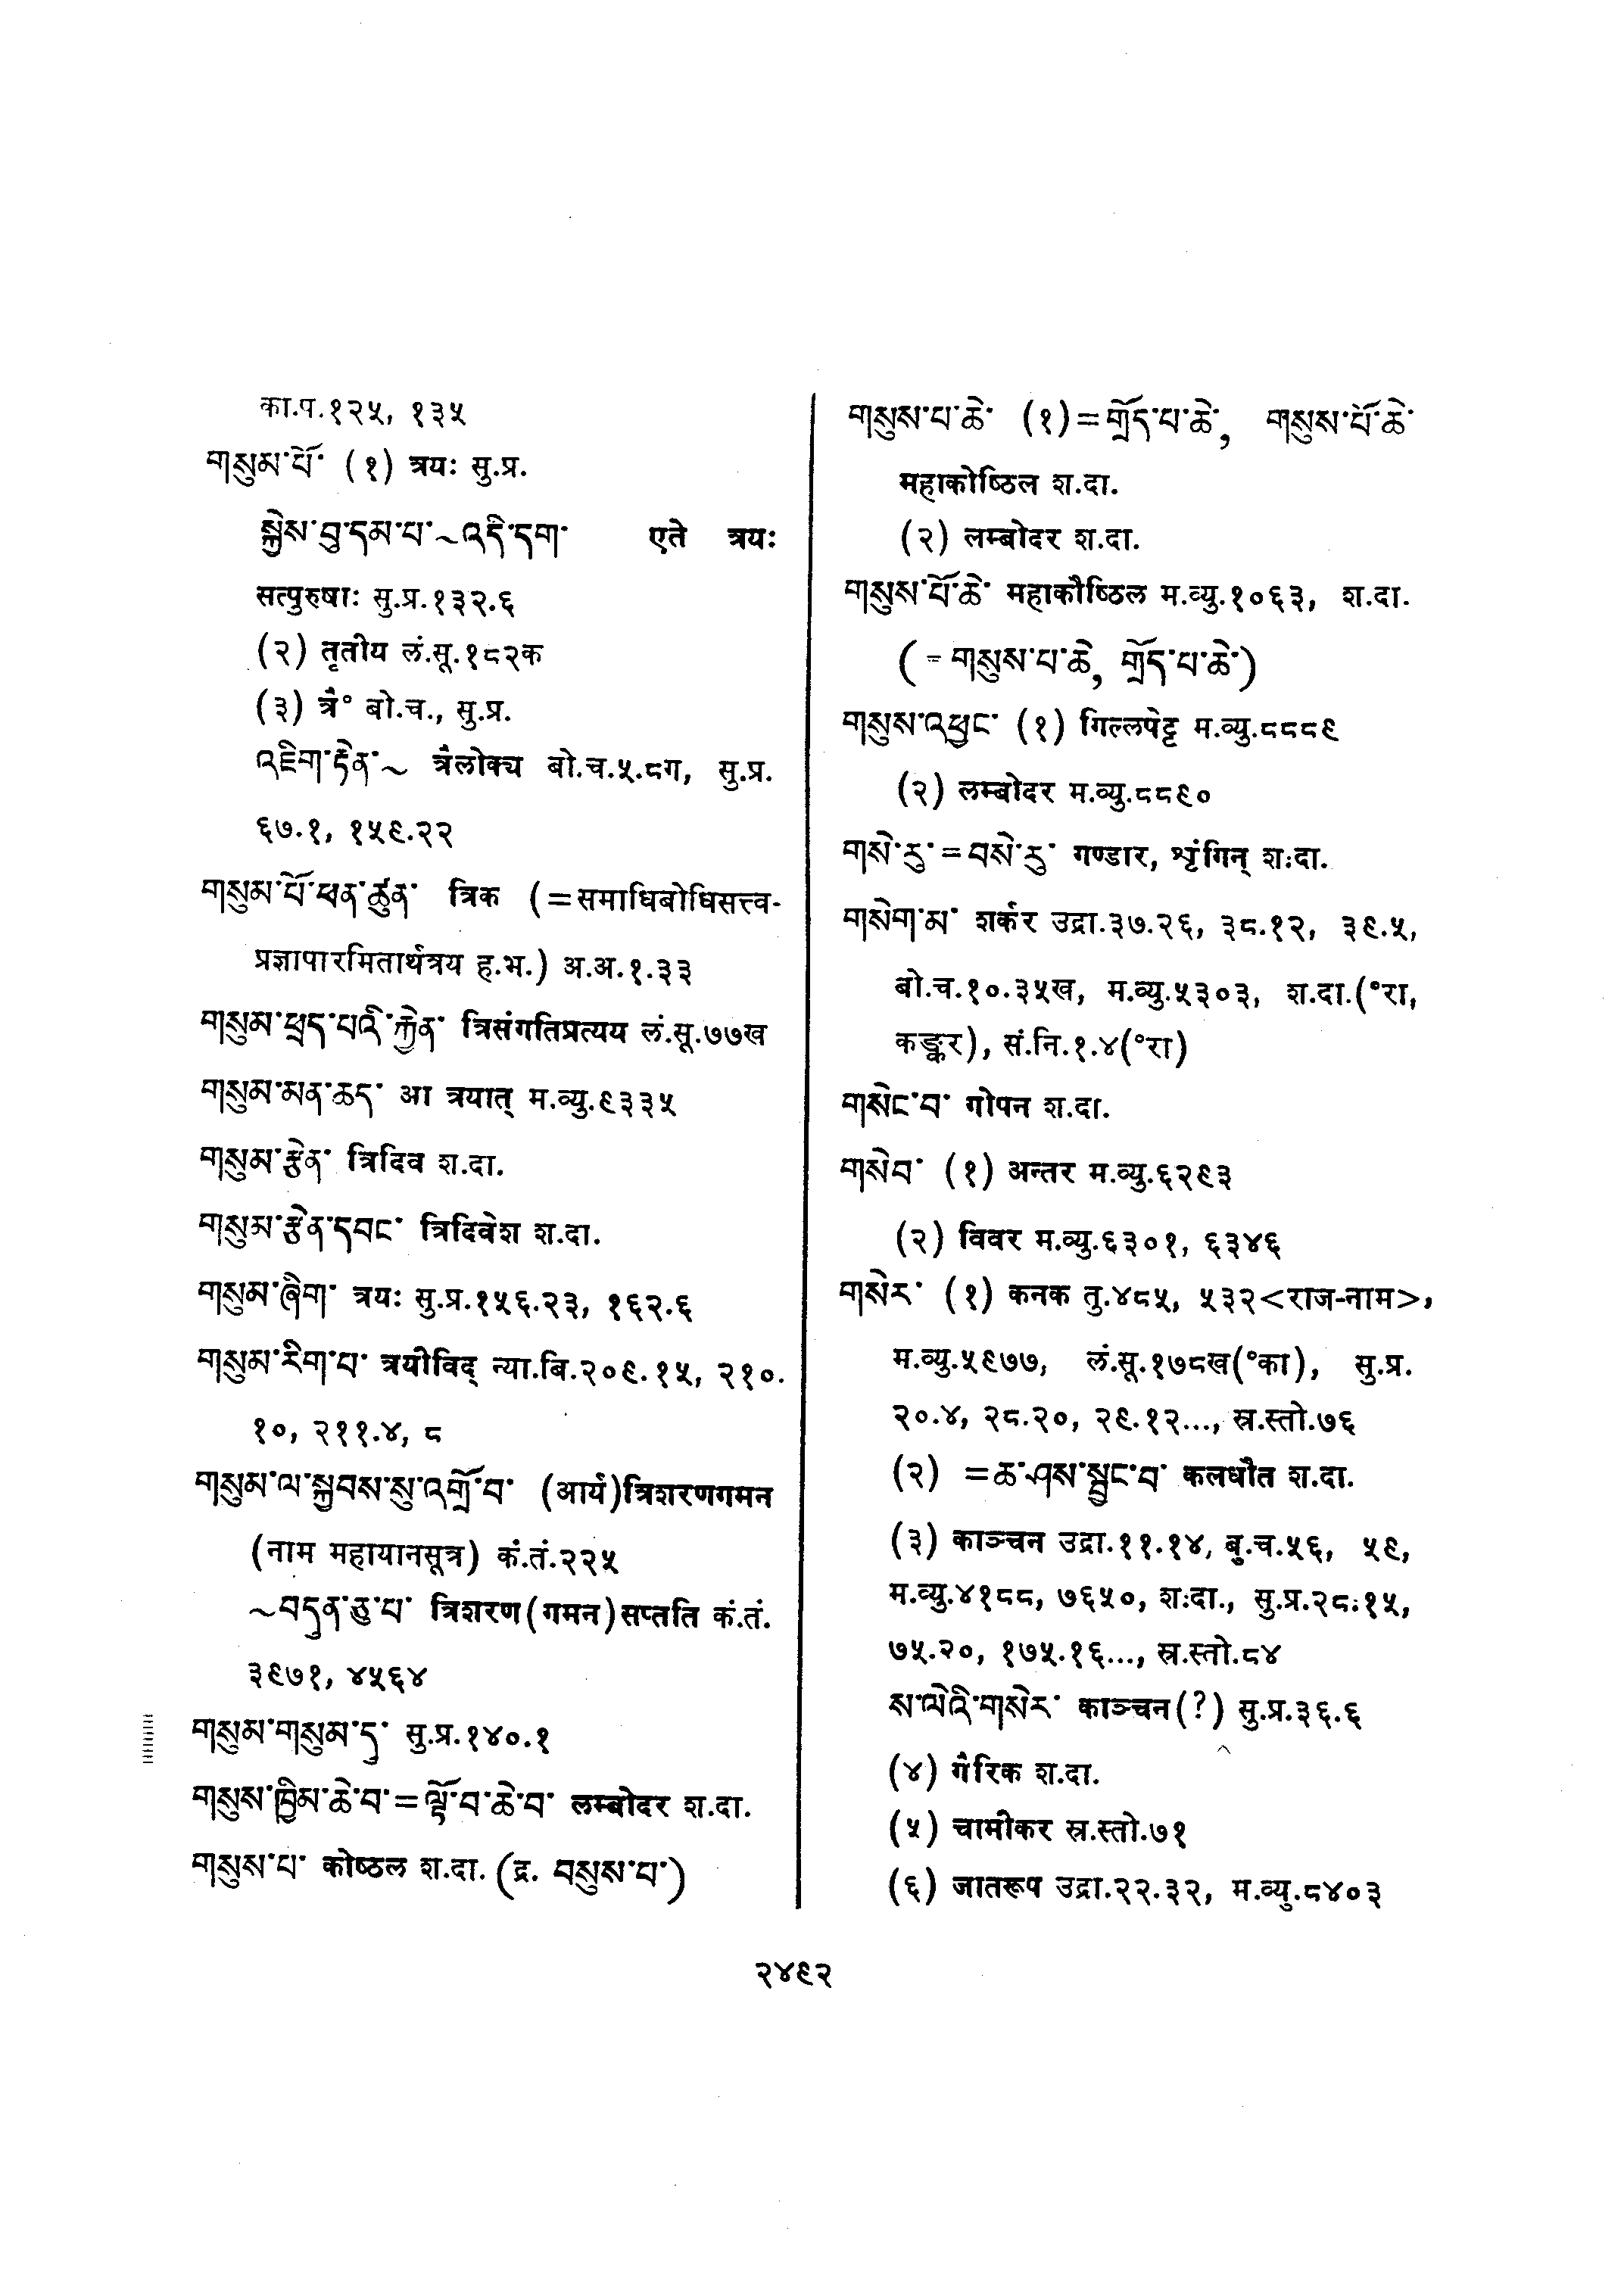 का.प.१२५, १३५
གསུམ་པོ་ (१) त्रयः सु.प्र.
སྐྱེས་བུ་དམ་པ་~འདི་དག་ एते त्रयः
सत्पुरुषाः सु.प्र.१३२.६
(२) तृतीय लं.सू.१८२क
(३) त्रै° बो.च., सु.प्र.
འཇིག་རྟེན་~ त्रैलोक्य बो.च.५.८ग, सु.प्र.
६७.१, १५९.२२
གསུམ་པོ་ཕན་ཚུན་ त्रिक (=समाधिबोधिसत्त्व-
प्रज्ञापारमितार्थत्रय ह.भ.) अ.अ.१.३३
གསུམ་ཕྲད་པའི་རྐྱེན་ त्रिसंगतिप्रत्यय लं.सू.७७ख
གསུམ་མན་ཆད་ आ त्रयात् म.व्यु.९३३५
གསུམ་རྩེན་ त्रिदिव श.दा.
གསུམ་རྩེན་དབང་ त्रिदिवेश श.दा.
གསུམ་ཞིག་ त्रयः सु.प्र.१५६.२३, १६२.६
གསུམ་རིག་པ་ त्रयीविद् न्या.बि.२०९.१५, २१०.
१०, २११.४, ८
གསུམ་ལ་སྐྱབས་སུ་འགྲོ་བ་ (आर्य)त्रिशरणगमन
(नाम महायानसूत्र) कं.तं.२२५
~བདུན་ཅུ་པ་ त्रिशरण(गमन)सप्तति कं.तं.
३९७१, ४५६४
གསུམ་གསུམ་དུ་ सु.प्र.१४०.१
གསུས་ཁྱིམ་ཆེ་བ་=ལྟོ་བ་ཆེ་བ་ लम्बोदर श.दा.
གསུས་པ་ कोष्ठल श.दा. (द्र. བསུས་པ་)
གསུས་པ་ཆེ་ (१)=གྲོད་པ་ཆེ་, གསུས་པོ་ཆེ་
महाकोष्ठिल श.दा.
(२) लम्बोदर श.दा.
གསུས་པོ་ཆེ་ महाकौष्ठिल म.व्यु.१०६३, श.दा.
(=གསུས་པ་ཆེ, གྲོད་པ་ཆེ་)
གསུས་འཕྱང་ (१) गिल्लपेट्ट म.व्यु.८८८९
(२) लम्बोदर म.व्यु.८८९०
གསེ་རུ་=བསེ་རུ་ गण्डार, शृंगिन् श.दा.
གསེག་མ་ शर्कर उद्रा.३७.२६, ३८.१२, ३९.५,
बो.च.१०.३५ख, म.व्यु.५३०३, श.दा.(°रा,
कङ्कर), सं.नि.१.४(°रा)
གསེང་བ་ गोपन श.दा.
གསེབ་ (१) अन्तर म.व्यु.६२९३
(२) विवर म.व्यु.६३०१, ६३४६
གསེར་ (१) कनक तु.४८५, ५३२<राज-नाम>,
म.व्यु.५९७७, लं.सू.१७८ख(°का), सु.प्र.
२०.४, २८.२०, २९.१२..., स्र.स्तो.७६
(२) =ཆ་ཤས་སྦྱང་བ་ कलधौत श.दा.
(३) काञ्चन उद्रा.११.१४, बु.च.५६, ५९,
म.व्यु.४१८८, ७६५०, श.दा., सु.प्र.२८.१५,
७५.२०, १७५.१६..., स्र.स्तो.८४
ས་ལེའི་གསེར་ काञ्चन(?) सु.प्र.३६.६
(४) गैरिक श.दा.
(५) चामीकर स्र.स्तो.७१
(६) जातरूप उद्रा.२२.३२, म.व्यु.८४०३
२४९२